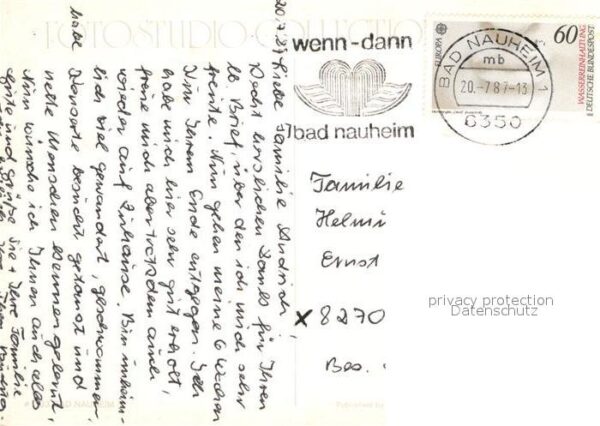 FOTOSTUDIO-COLLECTION
20.7.87
Liebe Familie
Recht herzlichen Dank für Ihren
lb. Brief, über den ich mich sehr
freute. Nun gehen meine 6 Wochen
Kur Ihrem Ende entgegen. Ich
habe mich hier sehr gut erholt,
freue mich aber trotzdem auch
wieder auf Zuhause. Bin
lich viel gewandert, geschwommen,
besucht, getanzt und
nette Menschen kennen gelernt,
Nun wünsche ich Ihnen auch alles
Gute und grüße Sie + Ihre Familie
habe
BAD NAUHEIM
wenn-dann
bad nauheim
BAD NAUHEIM 1
mb
20.-7.87-13
6350
EUROPA
60
WASSERREINHALTUNG
DEUTSCHE BUNDESPOST
Familie
Helmu
Ernst
x 8270
Bes.
privacy protection
Datenschutz